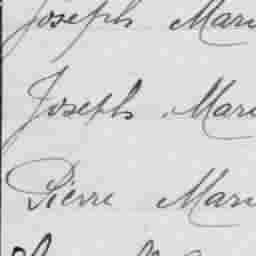 Joseph Mari
Joseph Mari
Pierre Mari